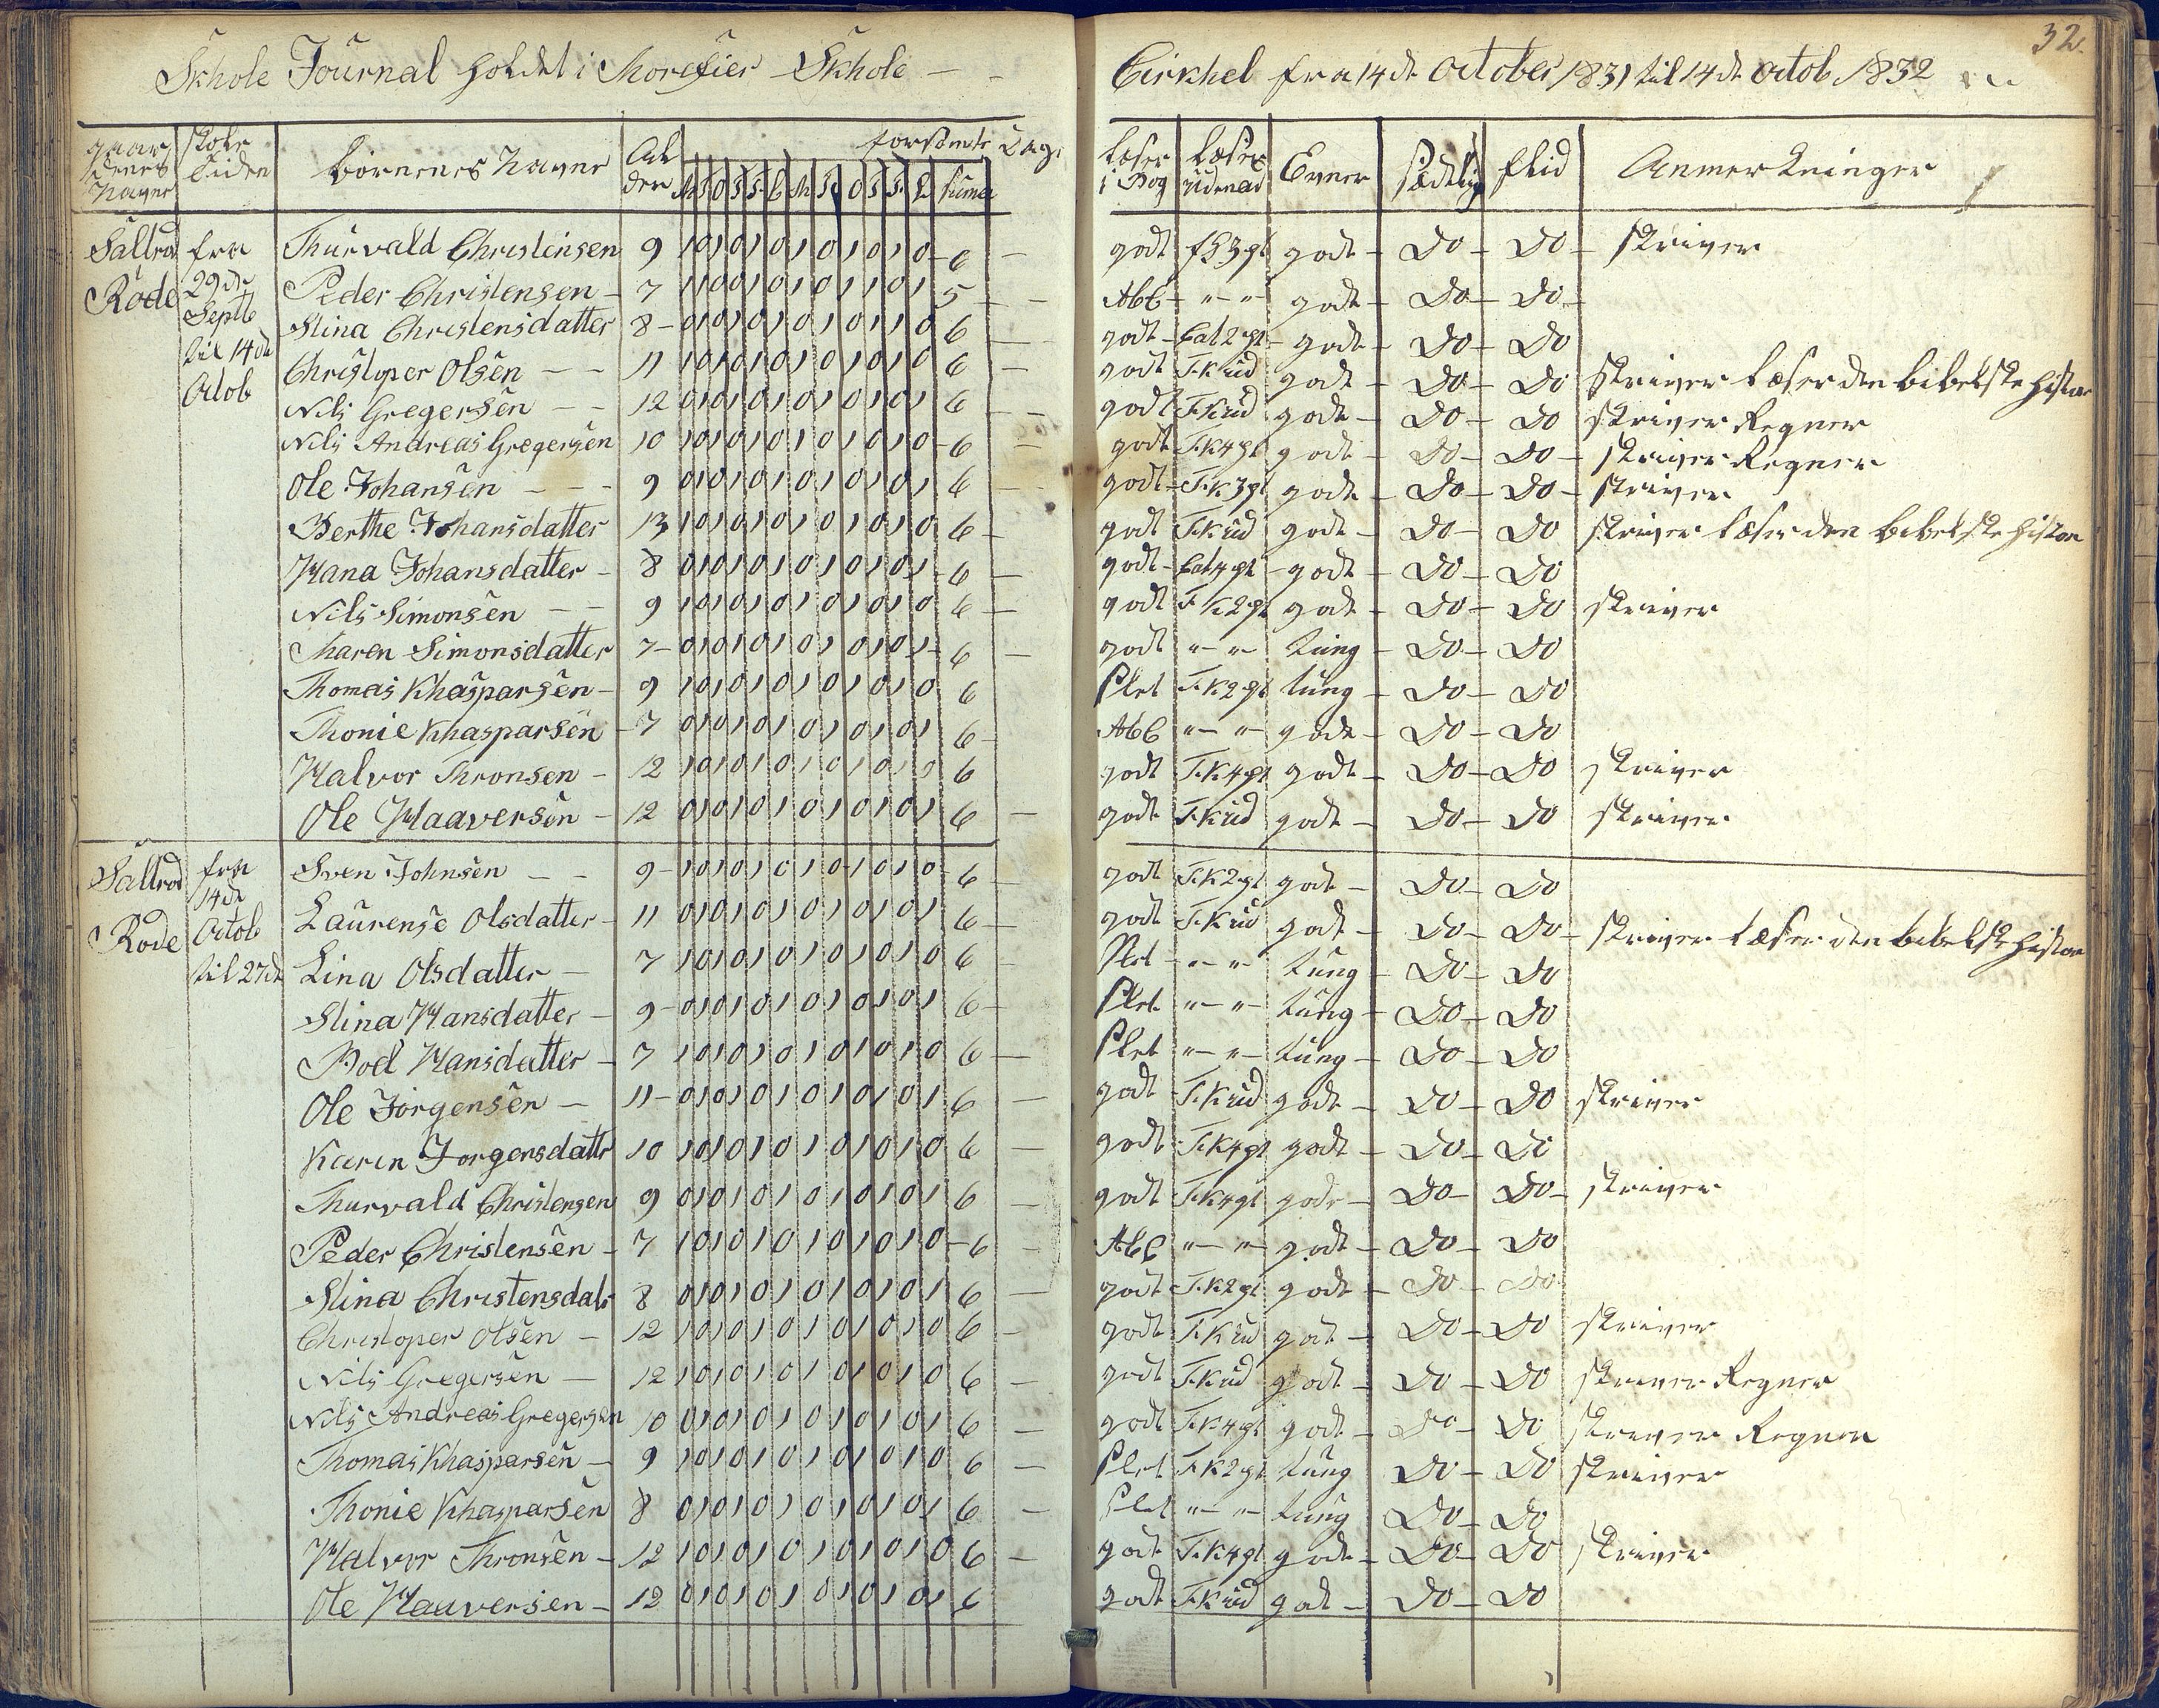 32.
Skhole Journal holdet i Morefier Skhole – – Cirkhel fra 14de October 1831 til 14de Octob 1832
gaardenes Navne | skole tiden | börnenes Navne | Alderen | forsömte Dage | M S O S S L M S O S S L | Suma | læser i Bog | læser üdenad | Evner | sædelig | flid | Anmerkninger
Saltröd fra Thurvald Christensen 9 1 0 1 0 1 0 1 0 1 0 1 0 6 godt godt do do skriver
Röde 29de Peder Christensen 7 5 Abb " " godt do do
Septb Stina Christensdatter 8 0 1 0 1 0 1 0 1 0 1 1 0 6 godt Cat 2 pt godt do do
til 14de Christoper Olsen 11 1 0 1 0 1 0 1 0 1 0 1 0 6 godt T.K üd godt do do skriver læser den bibelske histor
Octob Nils Gregersen 12 0 1 0 1 0 1 0 1 0 1 0 1 6 godt T.K üd godt do do skriver Regner
Nils Andreas Gregersen 10 1 0 1 0 1 0 1 0 1 0 1 0 6 godt T.K 4 pt godt do do skriver Regner
Ole Johansen 9 0 1 0 1 0 1 0 1 0 1 0 1 6 godt T.K 3 pt godt do do skriver
Berthe Johansdatter 13 1 0 1 0 1 0 1 0 1 0 1 0 6 godt T.K üd godt do do skriver læser den bibelske histor
Hana Johansdatter 8 0 1 0 1 0 1 0 1 0 1 0 1 6 godt Cat 4 pt godt do do
Nils Simonsen 9 1 0 1 0 1 0 1 0 1 0 1 0 6 godt T.K 2 pt godt do do skriver
Maren Simonsdatter 7 0 1 0 1 0 1 0 1 0 1 0 1 6 godt " " tüng do do
Thomas Khasparsen 9 1 0 1 0 1 0 1 0 1 0 1 0 6 Slet T.K 2 pt tüng do do
Thonie Khasparsen 7 0 1 0 1 0 1 0 1 0 1 0 1 6 Abb " " godt do do
Halvor Thronsen 12 1 0 1 0 1 0 1 0 1 0 1 0 6 godt T.K 4 pt godt do do skriver
Ole Haaversen 12 0 1 0 1 0 1 0 1 0 1 0 1 6 godt T.K üd godt do do skriver
Saltröd fra Sven Johnsen 9 1 0 1 0 1 0 1 0 1 0 1 0 6 godt T.K 2 pt godt do do
14de
Röde Octob Laurense Olsdatter 11 0 1 0 1 0 1 0 1 0 1 0 1 6 godt T.K üd godt do do skriver læser den bibelske histor
til 27de Lina Olsdatter 7 1 0 1 0 1 0 1 0 1 0 1 0 6 Slet " " tüng do do
Stina Hansdatter 9 0 1 0 1 0 1 0 1 0 1 0 1 6 Slet " " tüng do do
Boel Hansdatter 7 1 0 1 0 1 0 1 0 1 0 1 0 6 Slet " " tüng do do
Ole Jörgensen 11 0 1 0 1 0 1 0 1 0 1 0 1 6 godt T.K üd godt do do skriver
Karen Jorgensdattr 10 1 0 1 0 1 0 1 0 1 0 1 0 6 godt T.K 4 pt godt do do
Thurvald Christensen 9 0 1 0 1 0 1 0 1 0 1 0 1 6 godt T.K 4 pt godt do do skriver
Peder Christensen 7 1 0 1 0 1 0 1 0 1 0 1 0 6 Abb " " godt do do
Stina Christensdatr 8 0 1 0 1 0 1 0 1 0 1 0 1 6 godt T.K 2 pt godt do do
Christoper Olsen 12 1 0 1 0 1 0 1 0 1 0 1 0 6 godt T.K üd godt do do skriver
Nils Gregersen 12 1 0 1 0 1 0 1 0 1 0 1 0 6 godt T.K üd godt do do skriver Regner
Nils Andreas Gregersen 10 0 1 0 1 0 1 0 1 0 1 0 1 6 godt T.K 4 pt godt do do skriver Regner
Thomas Khasparsen 9 1 0 1 0 1 0 1 0 1 0 1 0 6 Slet T.K 2 pt tüng do do skriver
Thonie Khasparsen 8 0 1 0 1 0 1 0 1 0 1 0 1 6 Slet " " tüng do do
Halvor Thronsen 12 1 0 1 0 1 0 1 0 1 0 1 0 6 godt T.K 4 pt godt do do skriver
Ole Haaversen 12 0 1 0 1 0 1 0 1 0 1 0 1 6 godt T.K üd godt do do